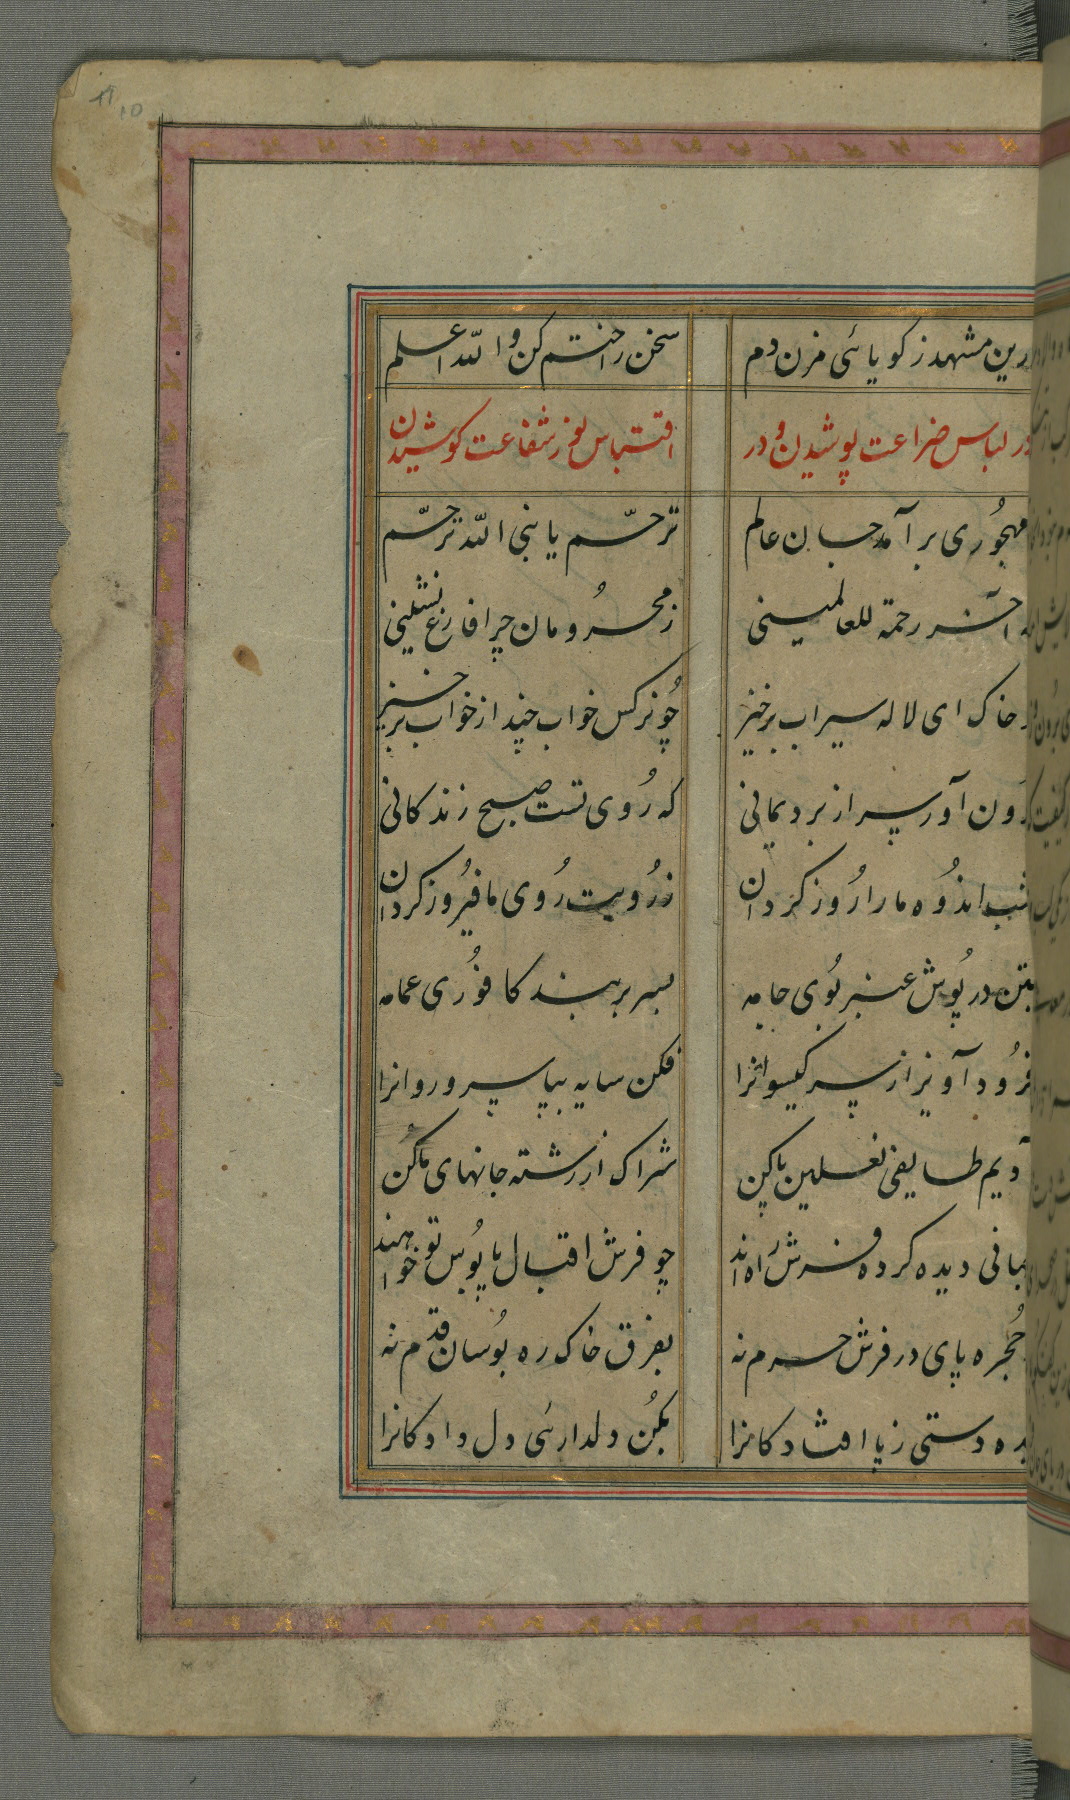 رین مشهد ز کویائی مزن دم سخن را ختم کن و الله اعلم
در لباس ضراعت پوشیدن و در اقتباس نور شفاعت کوشیدن
مهجوری برآمد جان عالم ترحّم یا نبی الله ترحّم
آخر رحمة للعالمینی ز محرومان چرا فارغ نشینی
خاک ای لاله سیراب برخیز چو نرکس خواب چند از خواب برخیز
برون آور سر از برد یمانی که روی تست صبح زندکانی
شب اندوه ما را روز کردان ز رویت روی ما فیروز کردان
بتن در پوش عنبر بوی جامه بسر بربند کافوری عمامه
فرود آویز از سر کیسوانرا فکن سایه بپا سرو روانرا
ادیم طایفی نعلین پا کن شراک از رشته جانهای ما کن
دیده کرده فرش راه اند چو فرش اقبال پابوس تو خواهند
حجره پای در فرش حرم نه بفرق خاک ره بوسان قدم نه
بده دستی ز پا افتادکانرا بکن دلداریی دل دادکانرا